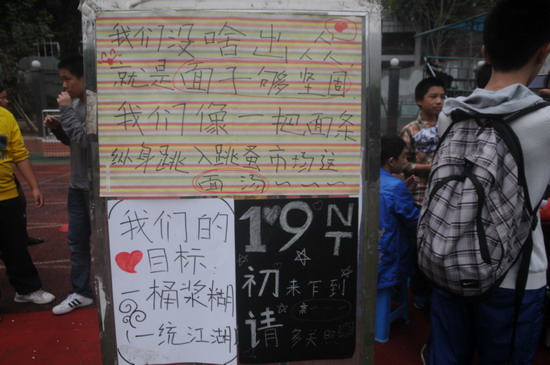 我们没啥出众
就是面子一够坚固
我们像一把面条
纵身跳入跳蚤市场这
面汤~~~
我们的
目标:
一桶浆糊
(一统江湖)
19 NT
初来下到
请多关照